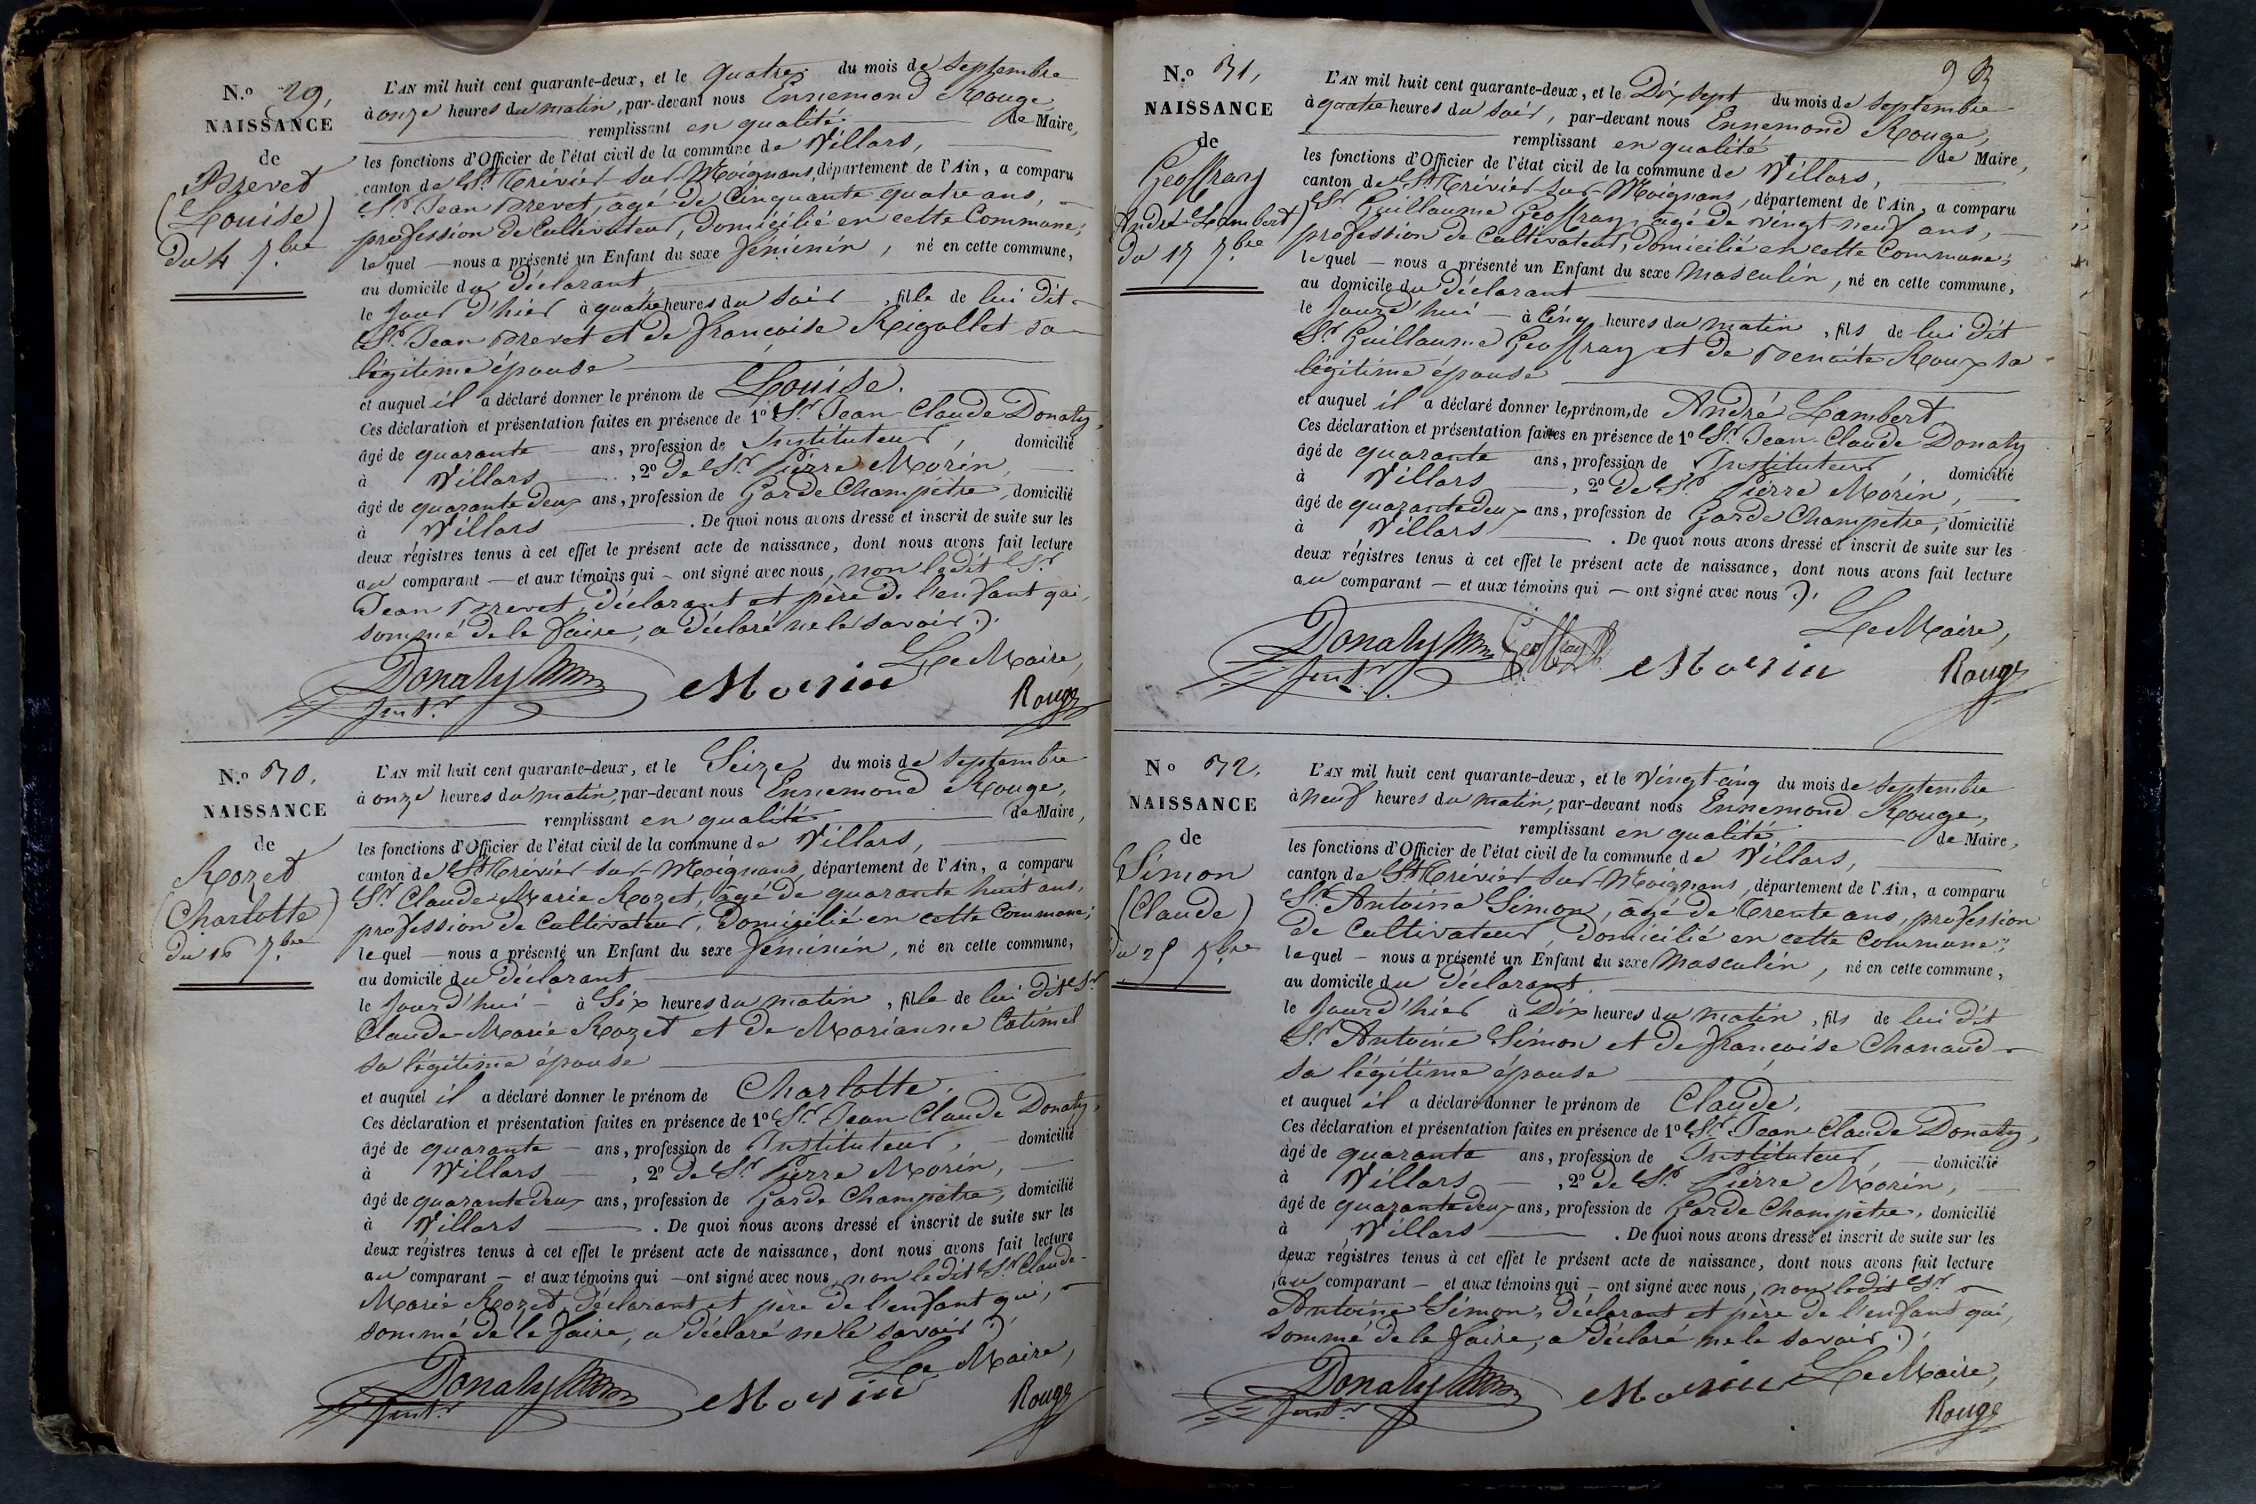 N.º 29,
NAISSANCE
de
Brevet
(Louise)
du 4 7.bre
L'AN mil huit cent quarante-deux, et le quatre du mois de septembre
à onze heures du matin, par-devant nous Ennemond Rouge,
remplissant en qualité de Maire,
les fonctions d'Officier de l'état civil de la commune de Villars,
canton de St. Trivier sur Moignans, département de l'Ain, a comparu
Sr. Jean Brevet, agé de Cinquante quatre ans,
profession de Cultivateur, domicilié en cette Commune;
lequel nous a présenté un Enfant du sexe féminin, né en cette commune,
au domicile du déclarant
le jour d'hier à quatre heures du soir, fille de lui dit
Sr. Jean Brevet et de françoise Rigollet sa
légitime épouse
et auquel il a déclaré donner le prénom de Louise.
Ces déclaration et présentation faites en présence de 1º Sr. Jean-Claude Donaty,
âgé de quarante ans, profession de Instituteur, domicilié
à Villars, 2º de Sr. Pierre Morin,
âgé de quarante deux ans, profession de Garde Champêtre, domicilié
à Villars. De quoi nous avons dressé et inscrit de suite sur les
deux régistres tenus à cet effet le présent acte de naissance, dont nous avons fait lecture
au comparant et aux témoins qui ont signé avec nous, non ledit Sr.
Jean Brevet, déclarant et père de l'enfant qui,
sommé de le faire, a déclaré ne le savoir.
Le Maire,
Donaty
Inst.r
Morin
Rouge
N.º 30,
NAISSANCE
de
Rozet
(Charlotte)
du 16 7.bre
L'AN mil huit cent quarante-deux, et le Seize du mois de septembre
à onze heures du matin, par-devant nous Ennemond Rouge,
remplissant en qualité de Maire,
les fonctions d'Officier de l'état civil de la commune de Villars,
canton de St. Trivier sur Moignans, département de l'Ain, a comparu
Sr. Claude-Marie Rozet, âgé de quarante huit ans,
profession de Cultivateur, domicilié en cette Commune;
lequel nous a présenté un Enfant du sexe féminin, né en cette commune,
au domicile du déclarant
le jourd'hui à Six heures du matin, fille de lui dit Sr.
Claude-Marie Rozet et de Marianne Catimel
sa légitime épouse
et auquel il a déclaré donner le prénom de Charlotte.
Ces déclaration et présentation faites en présence de 1º Sr. Jean Claude Donaty,
âgé de quarante ans, profession de Instituteur, domicilié
à Villars, 2º de Sr. Pierre Morin,
âgé de quarante deux ans, profession de Garde Champêtre, domicilié
à Villars. De quoi nous avons dressé et inscrit de suite sur les
deux régistres tenus à cet effet le présent acte de naissance, dont nous avons fait lecture
au comparant et aux témoins qui ont signé avec nous, non ledit Sr. Claude-
Marie Rozet, déclarant et père de l'enfant qui,
sommé de le faire, a déclaré ne le savoir.
Le Maire,
Donaty
Inst.r
Morin
Rouge
93
N.º 31,
NAISSANCE
de
Geoffray
(André-Lambert)
du 17 7.bre
L'AN mil huit cent quarante-deux, et le Dix sept du mois de septembre
à quatre heures du soir, par-devant nous Ennemond Rouge,
remplissant en qualité de Maire,
les fonctions d'Officier de l'état civil de la commune de Villars,
canton de St. Trivier sur Moignans, département de l'Ain, a comparu
Sr. Guillaume Geoffray, âgé de vingt neuf ans,
profession de Cultivateur, domicilié en cette Commune;
lequel nous a présenté un Enfant du sexe masculin, né en cette commune,
au domicile du déclarant
le jourd'hui à Cinq heures du matin, fils de lui dit
Sr. Guillaume Geoffray et de Benoite Roux sa
légitime épouse
et auquel il a déclaré donner le prénom de André Lambert
Ces déclaration et présentation faites en présence de 1º Sr. Jean-Claude Donaty
âgé de quarante ans, profession de Instituteur, domicilié
à Villars, 2º de Sr. Pierre Morin,
âgé de quarante deux ans, profession de Garde Champêtre, domicilié
à Villars. De quoi nous avons dressé et inscrit de suite sur les
deux régistres tenus à cet effet le présent acte de naissance, dont nous avons fait lecture
au comparant et aux témoins qui ont signé avec nous.
Le Maire,
Donaty
Inst.r
Geoffray
Morin
Rouge
Nº 32,
NAISSANCE
de
Simon
(Claude)
du 25 7bre
L'AN mil huit cent quarante-deux, et le vingt-cinq du mois de septembre
à neuf heures du matin, par-devant nous Ennemond Rouge,
remplissant en qualité de Maire,
les fonctions d'Officier de l'état civil de la commune de Villars,
canton de St. Trivier sur Moignans, département de l'Ain, a comparu
Sr. Antoine Simon, âgé de trente ans, profession
de Cultivateur, domicilié en cette Commune;
lequel nous a présenté un Enfant du sexe masculin, né en cette commune,
au domicile du déclarant
le jour d'hier à Dix heures du matin, fils de lui dit
Sr. Antoine Simon et de françoise Chanaud
sa légitime épouse
et auquel il a déclaré donner le prénom de Claude.
Ces déclaration et présentation faites en présence de 1º Sr. Jean-Claude Donaty,
âgé de quarante ans, profession de Instituteur, domicilié
à Villars, 2º de Sr. Pierre Morin,
âgé de quarante deux ans, profession de Garde Champêtre, domicilié
à Villars. De quoi nous avons dressé et inscrit de suite sur les
deux régistres tenus à cet effet le présent acte de naissance, dont nous avons fait lecture
au comparant et aux témoins qui ont signé avec nous, non ledit Sr.
Antoine Simon, déclarant et père de l'enfant qui,
sommé de le faire, a déclaré ne le savoir.
Le Maire,
Donaty
Inst.r
Morin
Rouge